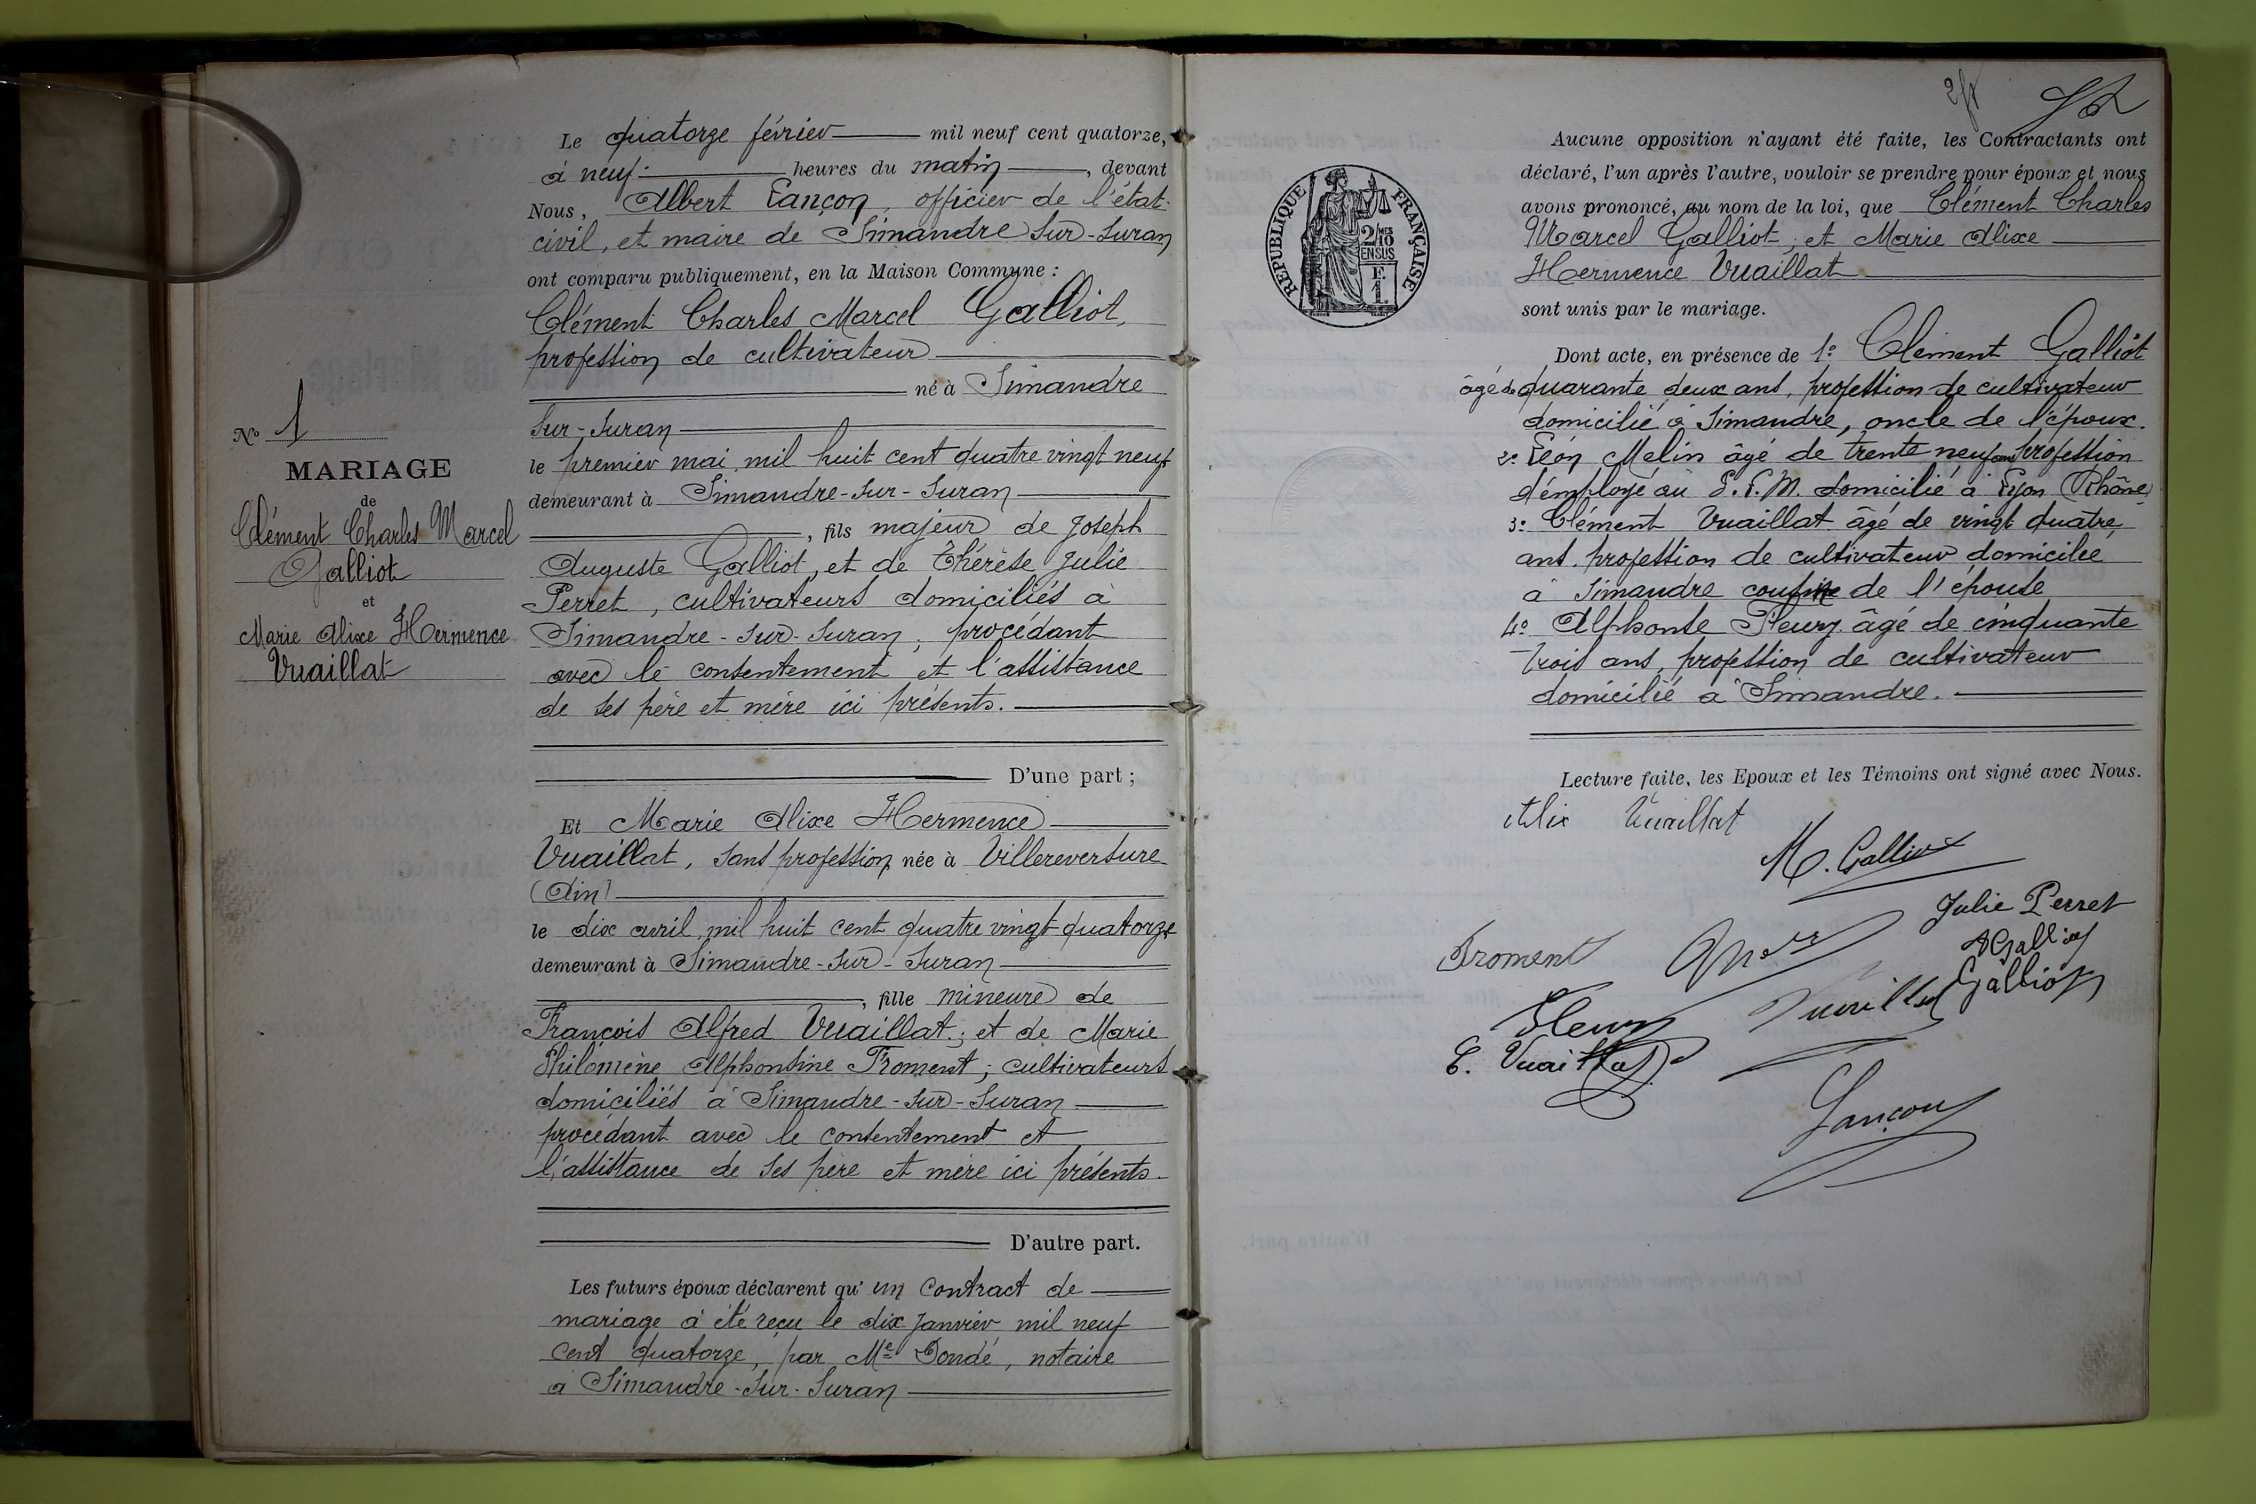 Le quatorze février mil neuf cent quatorze,
à neuf heures du matin, devant
Nous, Albert Lançon, officier de l'état-
civil, et maire de Simandre-sur-Suran
ont comparu publiquement, en la Maison Commune :
Clément Charles Marcel Galliot,
profession de cultivateur
né à Simandre
sur-Suran
le premier mai mil huit cent quatre vingt neuf
demeurant à Simandre-sur-Suran
, fils majeur de Joseph
Auguste Galliot, et de Thérèse Julie
Perret, cultivateurs domiciliés à
Simandre-sur-Suran, procédant
avec le consentement et l'assistance
de ses père et mère ici présents.
D'une part ;
Et Marie Alixe Hermence
Vuaillat, sans profession née à Villereversure
(Ain)
le dix avril mil huit cent quatre vingt quatorze
demeurant à Simandre-sur-Suran
, fille mineure de
François Alfred Vuaillat; et de Marie
Philomène Alphonsine Froment; cultivateurs
domiciliés à Simandre-sur-Suran
procédant avec le consentement et
l'assistance de ses père et mère ici présents.
D'autre part.
Les futurs époux déclarent qu'un contract de
mariage a été reçu le dix Janvier mil neuf
cent quatorze, par Me Dondé, notaire
à Simandre-sur-Suran
No 1
MARIAGE
de
Clément Charles Marcel
Galliot
et
Marie Alixe Hermence
Vuaillat
RÉPUBLIQUE FRANÇAISE
2/10 EN SUS
F.
1
Aucune opposition n'ayant été faite, les Contractants ont
déclaré, l'un après l'autre, vouloir se prendre pour époux et nous
avons prononcé, au nom de la loi, que Clément Charles
Marcel Galliot; et Marie Alixe
Hermence Vuaillat
sont unis par le mariage.
Dont acte, en présence de 1° Clément Galliot
âgé de quarante deux ans, profession de cultivateur
domicilié à Simandre, oncle de l'époux.
2° Léon Melin âgé de trente neuf ans profession
d'employé au P.L.M. domicilié à Lyon (Rhône)
3° Clément Vuaillat âgé de vingt quatre
ans profession de cultivateur domicilié
à Simandre cousin de l'épouse
4° Alphonse Fleury âgé de cinquante
trois ans, profession de cultivateur
domicilié à Simandre.
Lecture faite, les Epoux et les Témoins ont signé avec Nous.
Alix Vuaillat
M. Galliot
Julie Perret
A Galliot
Froment
Galliot
Vuaillat
Fleury
C. Vuaillat
Lançon